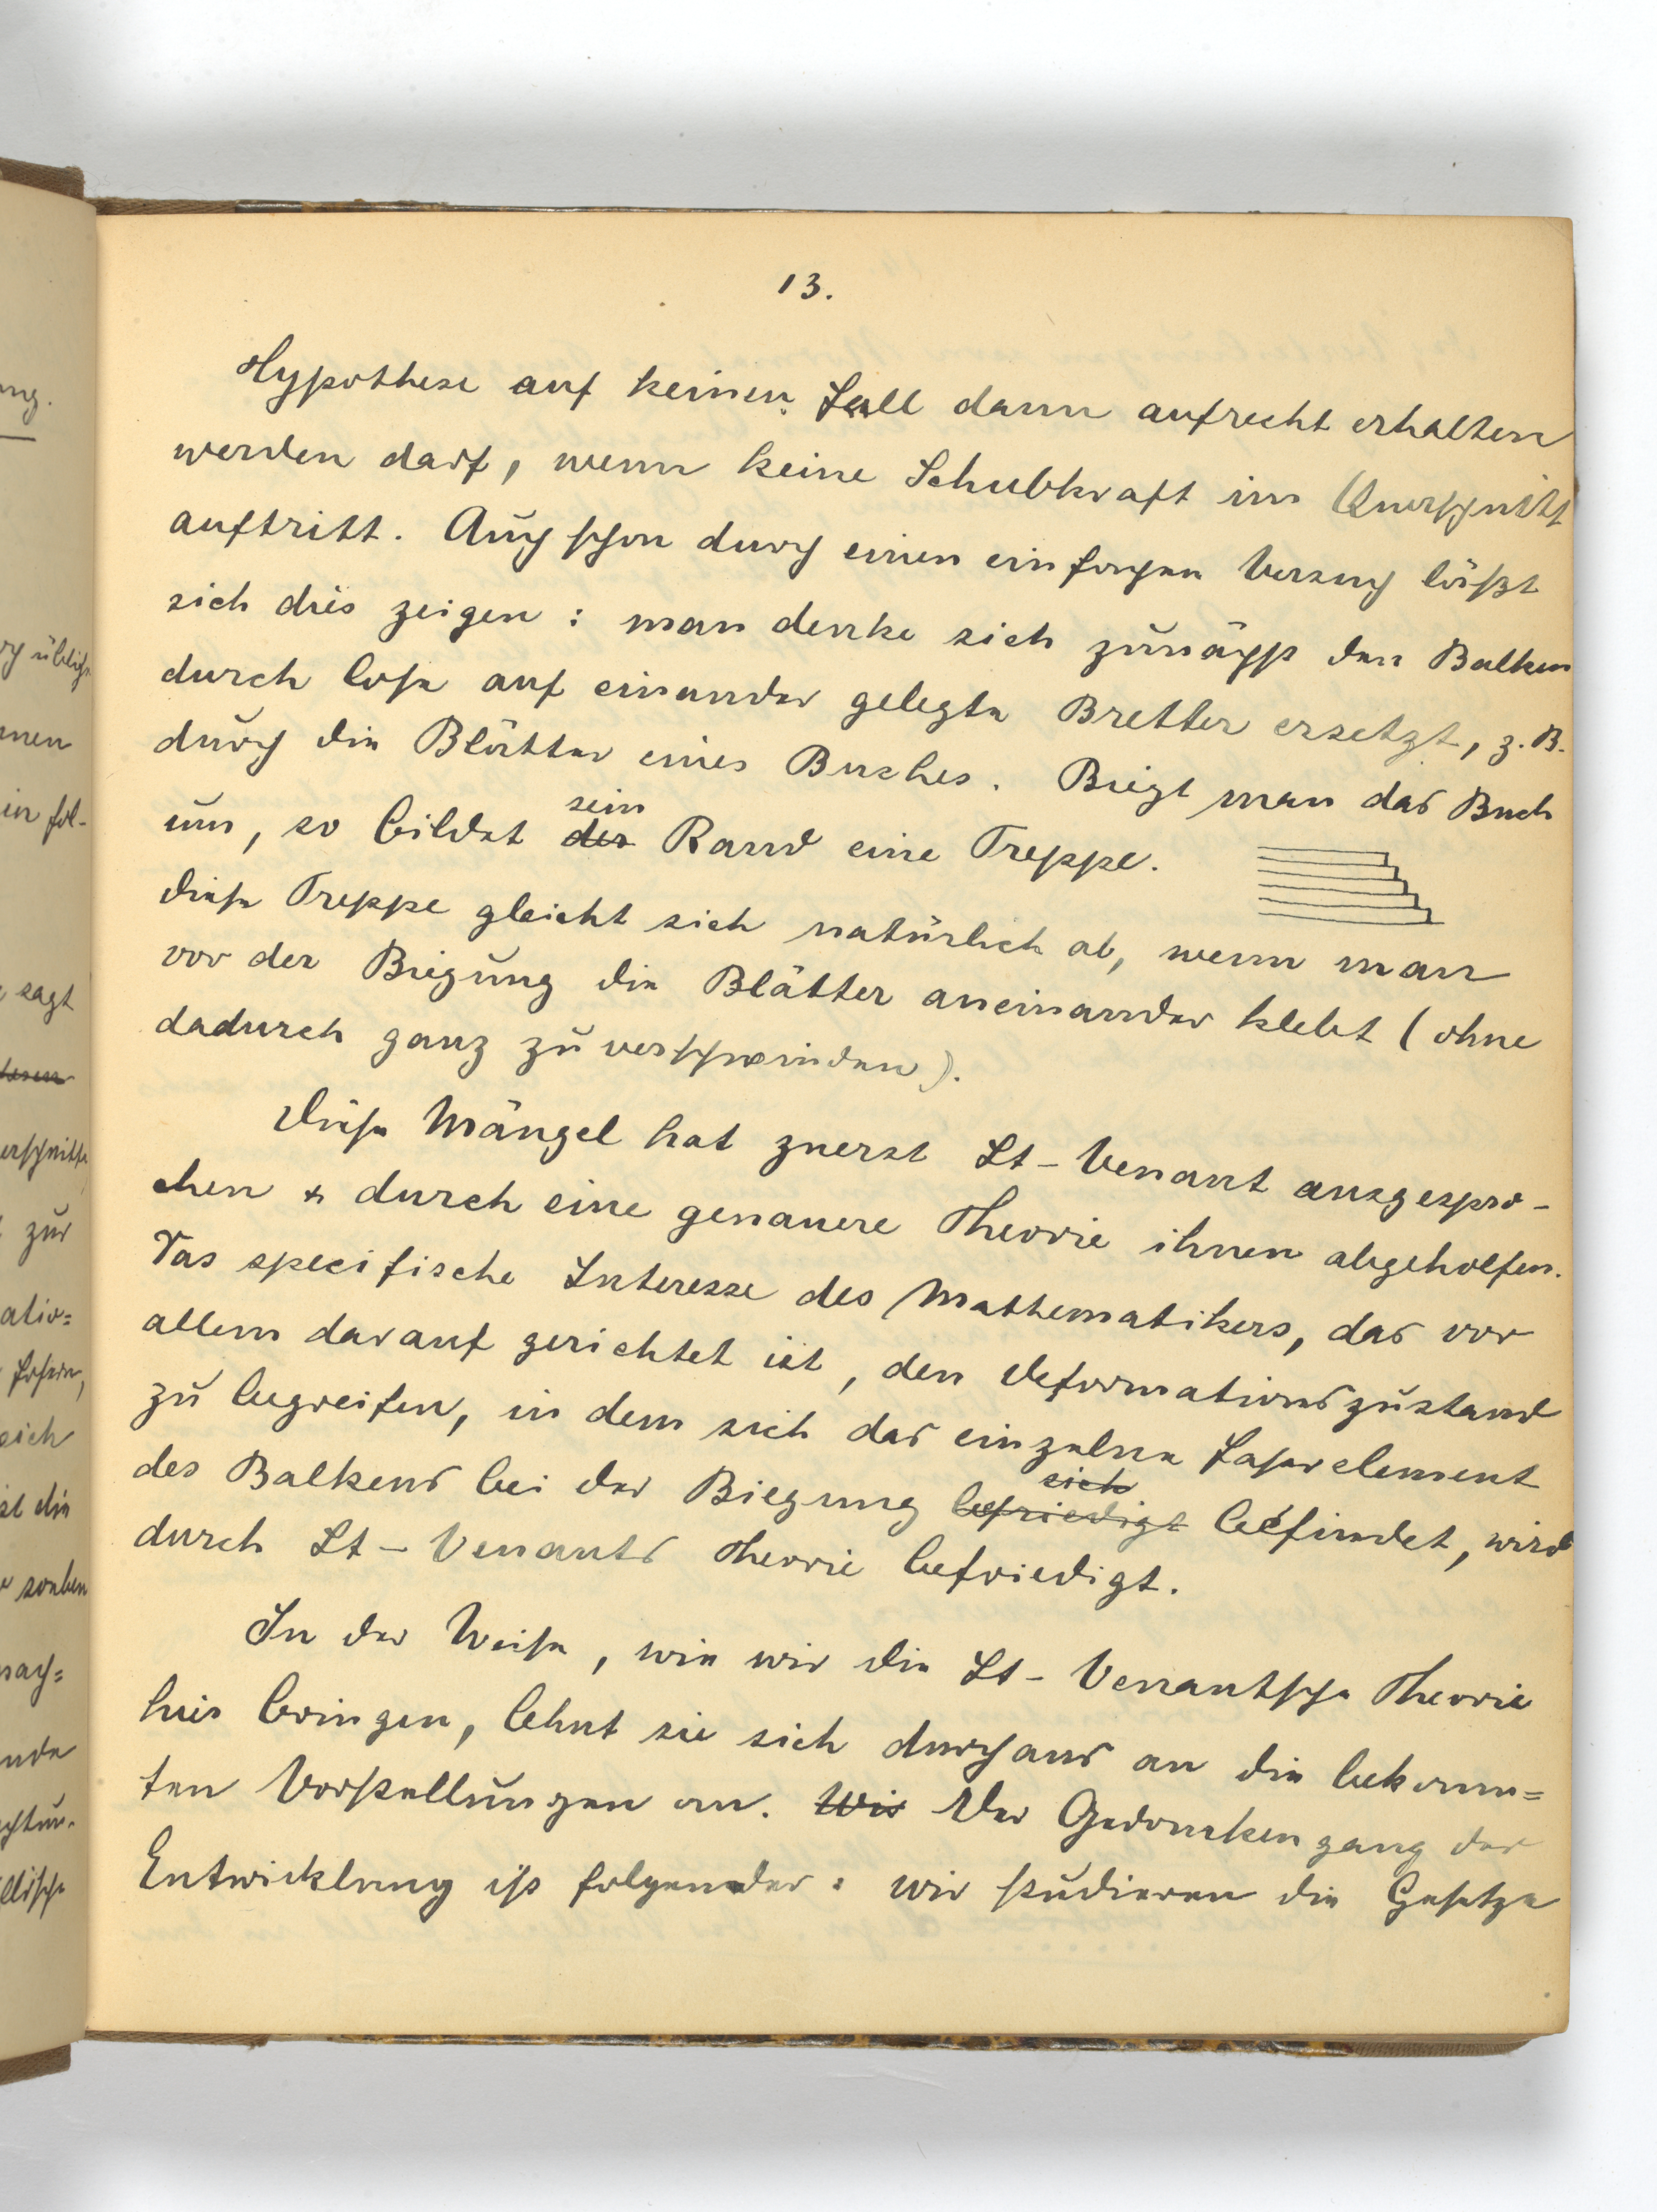 13.
Hypothese auf keinen Fall dann aufrecht erhalten
werden darf, wenn keine Schubkraft im Querschnitt
auftritt. Auch schon durch einen einfachen Versuch läßt
sich dies zeigen: man denke sich zunächst den Balken
durch lose auf einander gelegte Bretter ersetzt, z. B.
durch die Blätter eines Buches. Biegt man das Buch
sein
um, so bildet der Rand eine Treppe.
diese Treppe gleicht sich natürlich ab, wenn man
vor der Biegung die Blätter aneinander klebt (ohne
dadurch ganz zu verschwinden).
Diese Mängel hat zuerst St-Venant ausgespro-
chen & durch eine genauere Theorie ihnen abgeholfen.
Das specifische Interesse des Mathematikers, das vor
allem darauf gerichtet ist, den Deformationszustand
zu begreifen, in dem sich das einzelne Faserelement
sich
des Balkens bei der Biegung befriedigt befindet, wird
durch St-Venants Theorie befriedigt.
In der Weise, wie wir die St-Venantsche Theorie
hier bringen, lehnt sie sich durchaus an die bekann=
ten Vorstellungen an. Wir Der Gedankengang der
Entwicklung ist folgender: wir studieren die Gesetze